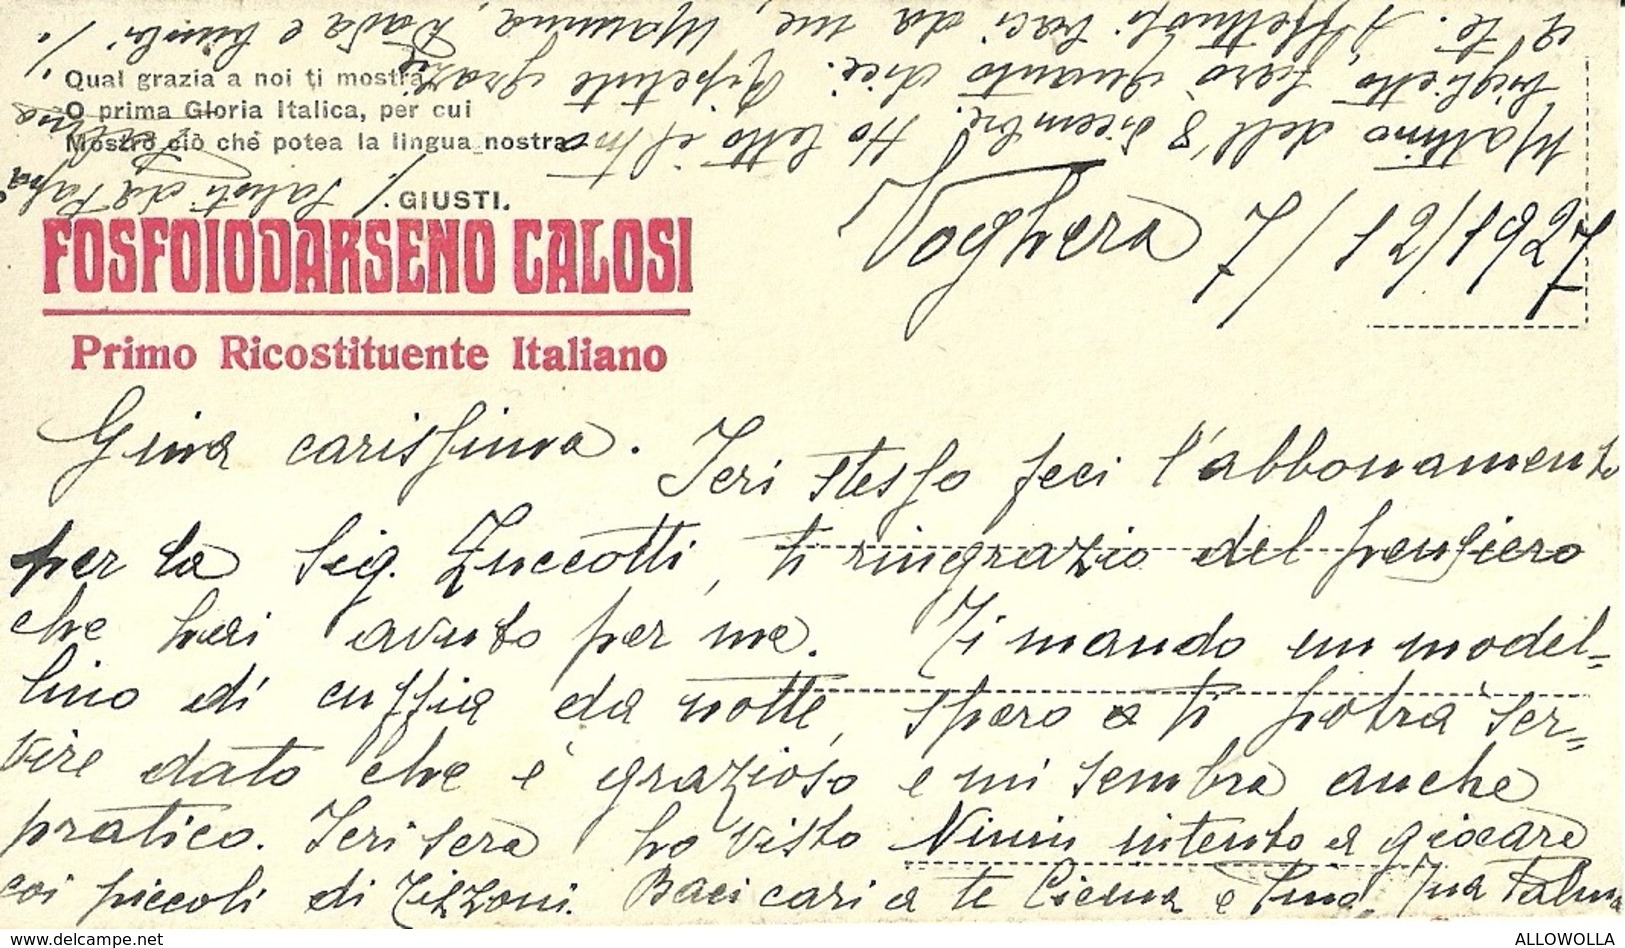 Qual grazia a noi ti mostra,
O prima Gloria Italica, per cui
Mostrò ciò che potea la lingua nostra
GIUSTI.
FOSFOIODARSENO CALOSI
Primo Ricostituente Italiano
Voghera 7/12/1927
Gina carissima. Ieri stesso feci l'abbonamento
per la Sig. Zuccotti, ti ringrazio del pensiero
che hai avuto per me. Ti mando un model=
lino di cuffia da notte, spero ti potrà ser=
vire dato che è grazioso e mi sembra anche
pratico. Ieri sera ho visto Ninin intento a giocare
coi piccoli di Tizzoni. Baci cari a te e Tua Palma
Mattino dell'8 dicembre. Ho letto il tuo
biglietto, farò quanto dici. Ripetute grazie
a te. Affettuosi baci da me, Mamma, Dada e bimbi
Saluti da Papà
ALLOWOLLA